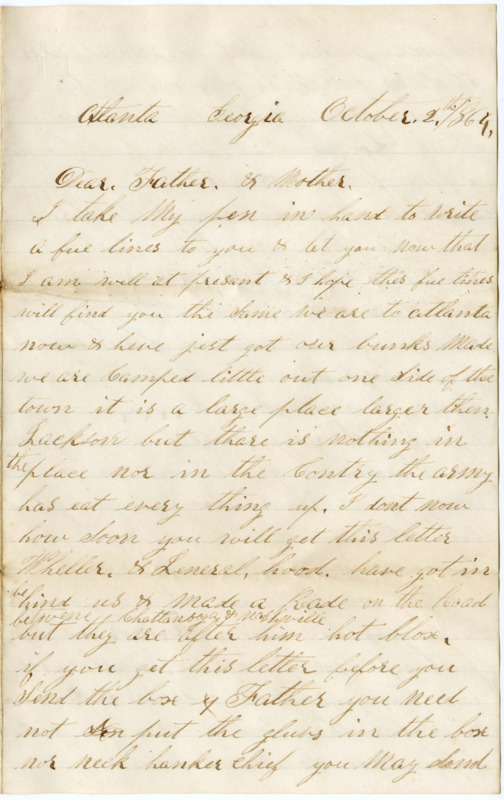 Atlanta Georgia October. 2th/864,
Dear. Father. & Mother.
I take My pen in hand to write
a fue lines to you & let you now that
I am well at present & I hope thes fue lines
will find you the same we are to atlanta
now & heve just got our bunks Made
we are Camped little out one side of the
town it is a large place larger then
Jackson but thare is nothing in
the place nor in the Contry the army
has eat every thing up. I dont now
how soon you will get this letter
Wheller. & General, hood. have got in
be hind us & made a Rade on the Road
betwene Chattanooga & Nashville
but they are after him hot blox.
if you get this letter before you
send the box & Father you need
not put the glubs in the box
nor neck hanker chief you May send